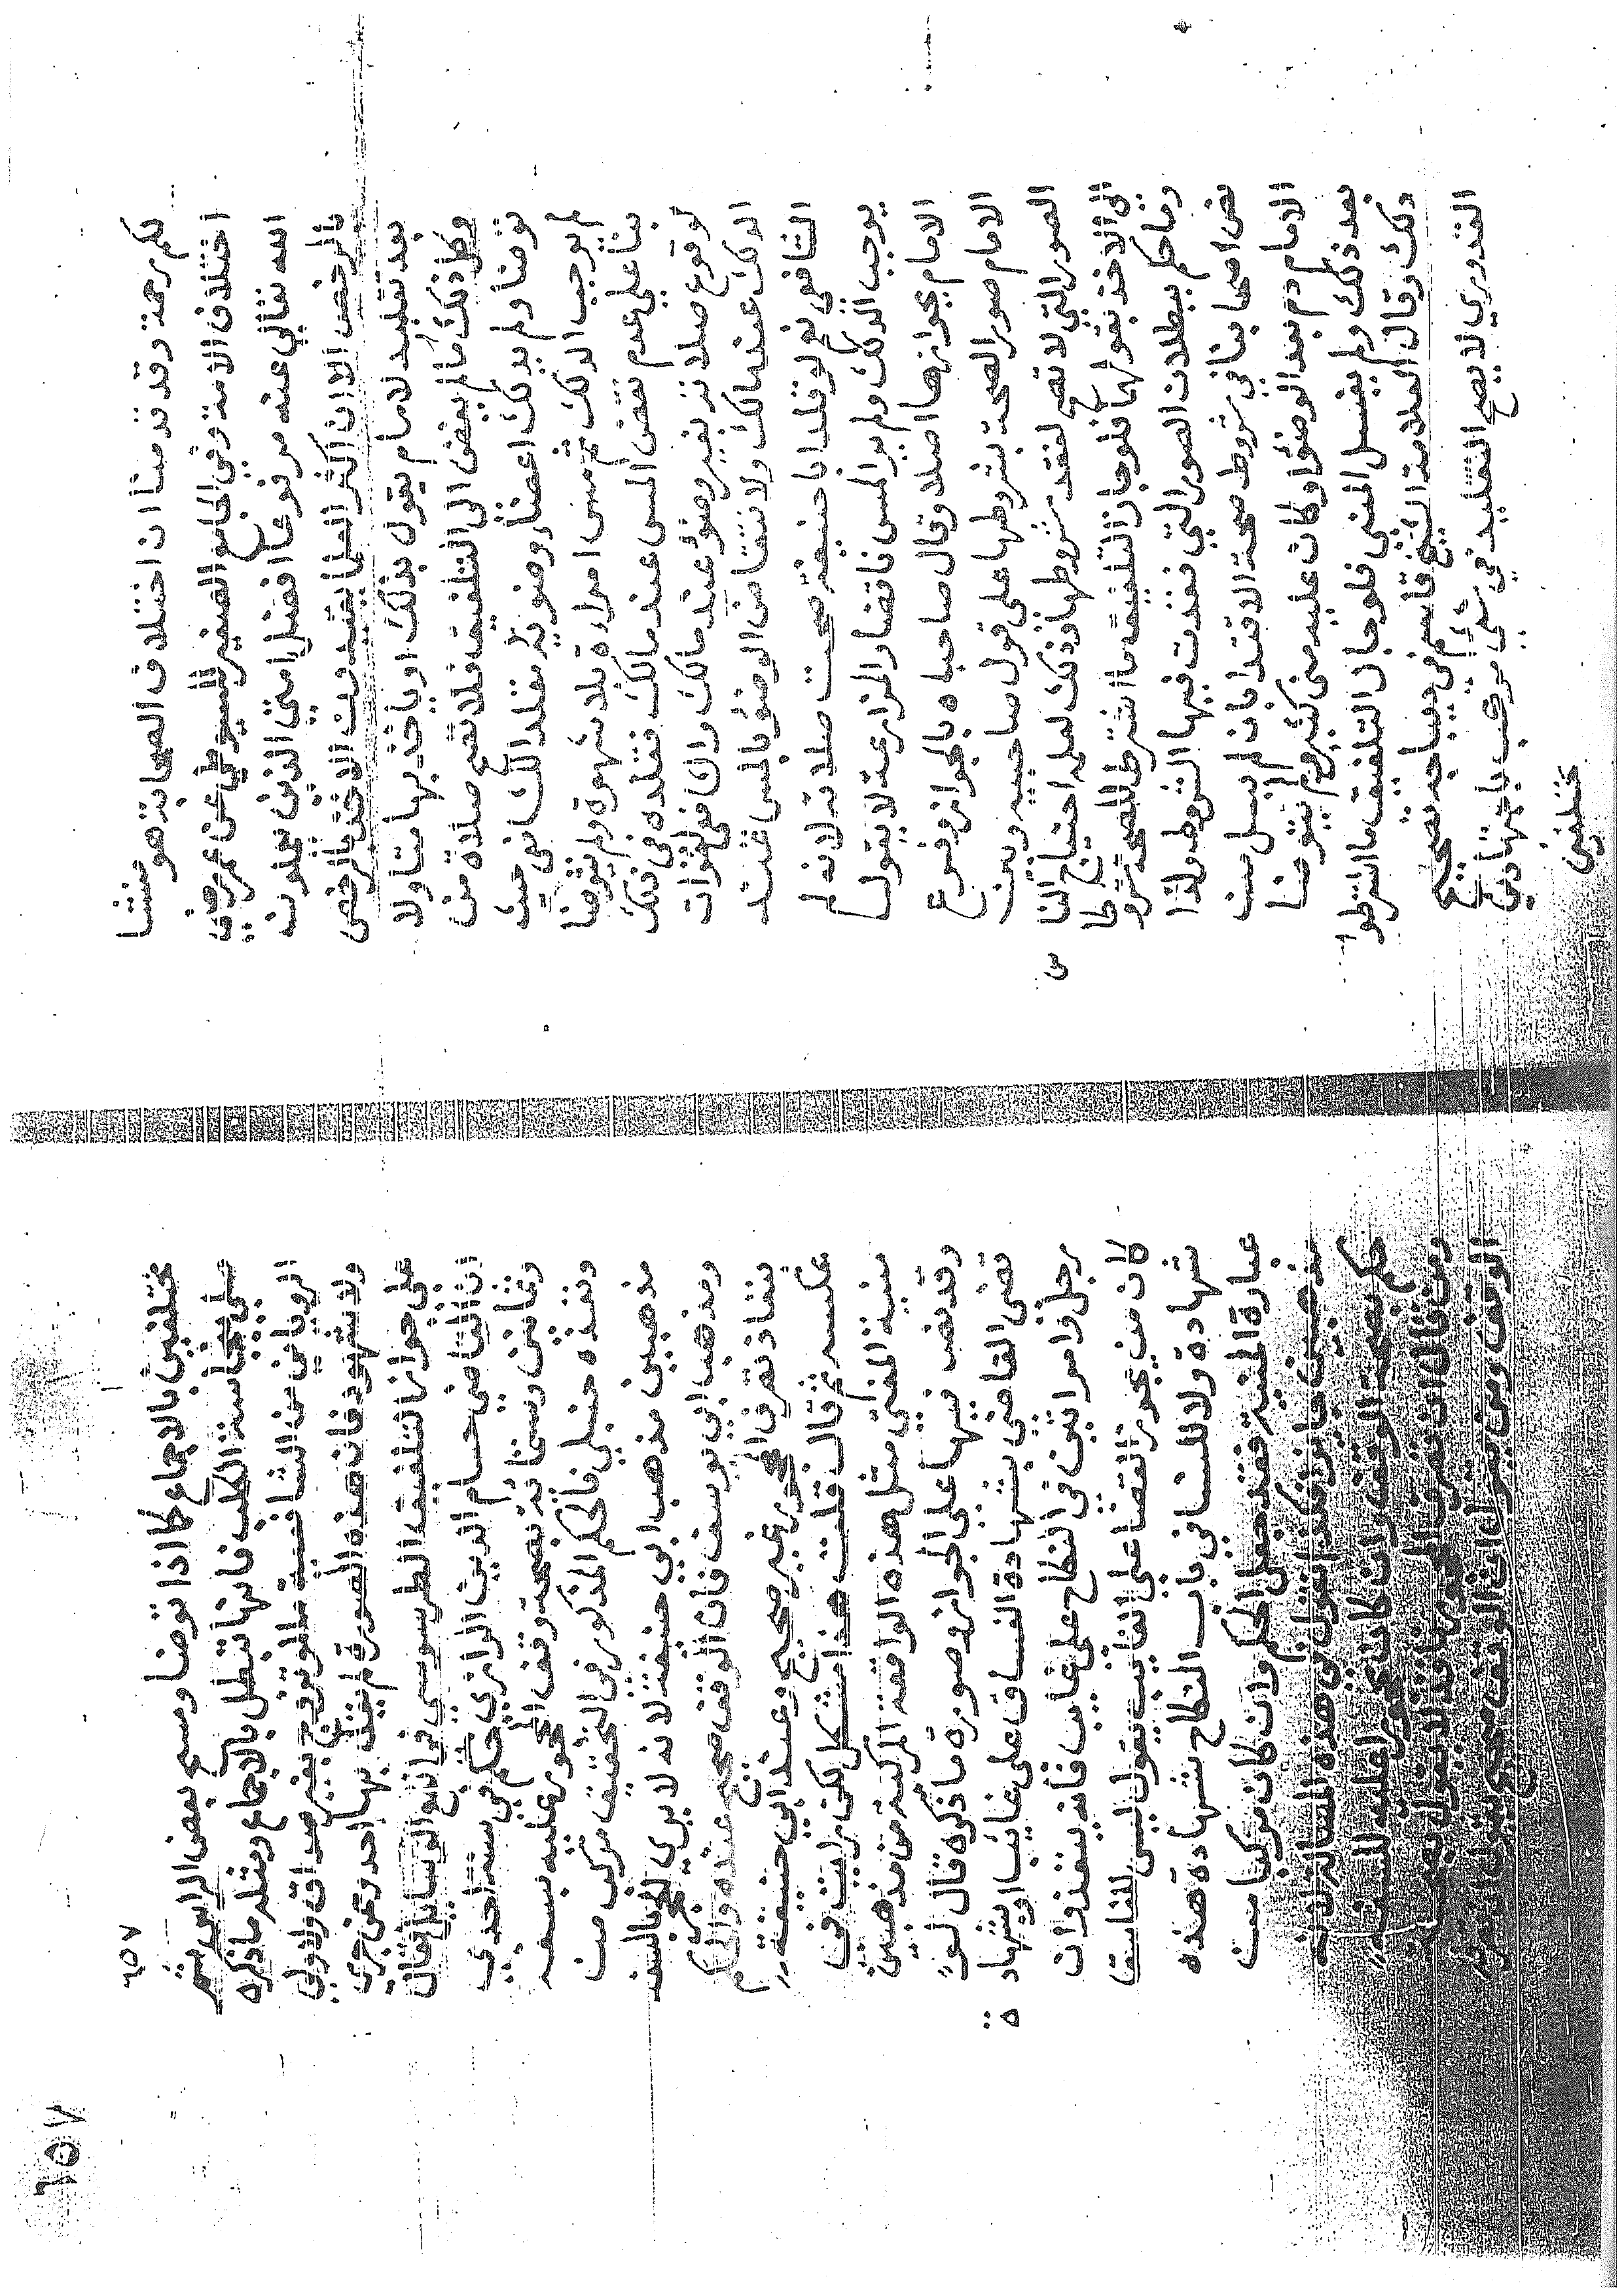 لكم رحمة وقد قدمنا أن اختلاف الصحابة هو منشأ
اختلاف الامة وفي الجامع الصغير للسيوطي عن عمر رضي
الله تعالي عنه مرفوعا افضل امتي الذين يعملون
بالرخص الا ان اكثر العلما يقيدون الاخذ بالرخص
بعد تقليد لامام يقول بذلك او ياخذ بها متاولا
وكل ذلك ما لم يفض الى التلفيق فلا تصح صلاة من
توضأ ولم يدلك اعضأ وضوئه مقلدا لك انفي حيث
لم يوجب الدلك ثم مس امراة بلا شهوة ولم يتوضأ
بنأ علي عدم نقض المس عند مالك فقلده في ذلك
لوقوع صلاته بغير وضوء عند مالك وان نفى لفوات
الدلك عند مالك ولانتقاض الوضؤ بالمس عند
الشافعي نعم لو قلد ابا حنيفة صحت صلاته لانه لم
يوجب الدلك ولم ير المس ناقضا والمزارعة لا يقول
الامام بجوازها اصلا وقال صاحباه بالجواز وفرع
الامام صور الصحة بشروطها على قول صاحبيه وبين
الصور التي لا تصح لفقد شروطها وذلك لعلمه احتياج النا
س
الى الاخذ بقولهما فلو جاز التلفيق ما اشترط للصحة شروطا
وما حكم ببطلان الصور التي فقدت فيها الشروط ولذا
نص اصحابنا في شروط صحة الاقتدا بان لم يسل من
الامام دم بعد الوضؤ او كان عليه مني كثير ولم يتوضأ
بعد ذلك ولم يغسل المني فلو جاز التلفيق ما اشترطوا
ذلك وقال العلامة الشيخ قاسم في ديباجة تصحيح
القدوري لا يصح التقليد في شئ مركب باجتهادين
مختلفين
٦٥٧
٦٥٧
مختلفين بالاجماع كما اذا توضأ ومسح بعض الراس ثم
صلى بنجاسة الكلب فانها تبطل بالاجماع ومثله ماذكره
الروياني من الشافعية لو تزوج بغير صداق ولا ولي
ولا شهود فان هذه الصورة لم يقل بها احد وممن جرى
على جواز التلفيق الطرسوسي في انفع الوسايل فقال
ان القاضي حسام الدين الرازي حكم في سنة احدى
وثمانين وستمائة بصحة وقف المحجور عليه بسفه
ونفذه حنبلي فالحكم المذكور في التحقيق مركب من
مذهبين مذهب ابي حنيفة لانه لا يرى الحجر بالسفه
ومذهب ابي يوسف فان الوقف صحيح عنده والحكم
بنفاذ تصرف المحجور غير صحيح وعند ابي حنيفة
عكسه ثم قال قلت هذا مشكل لكن رايت في
منية المفتي مثل هذه الواقعة المركبة من مذهبين
وقد نص فيها على الجواز وصورة ما ذكره قال لو
قضى القاضي بشهادة الفساق على غائب او بشهاد
ة
رجل وامراتين في النكاح على غايب فانه ينفذ وان
كان من يجوز القضا علي الغايب يقول ليس للفاسق
شهادة ولا للنسا في باب النكاح شهادة هذه
عبارة المنية فقد جعل الحكم وان كان مركبا من
مذهبين جائز فكذا نقول في هذه المسالة لانه
حكم بصحة الوقف وان كان محجورا عليه للسفه
ومن قال ان تصرف المحجور نافذ لا يقول بصحة
الوقف ومن يقول ان الوقف صحيح يقول ان تصرف